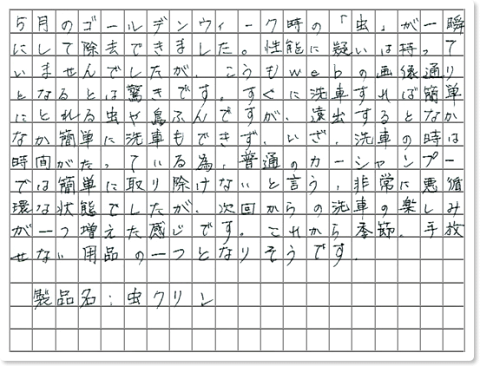 5月のゴールデンウィーク時の「虫」が一瞬
にして除去できました。性能に疑いは持って
いませんでしたが、こうもwebの画像通り
となるとは驚きです。すぐに洗車すれば簡単
にとれる虫や鳥ふんですが、遠出するとなか
なか簡単に洗車もできず、いざ、洗車の時は
時間がたっている為、普通のカーシャンプー
では簡単に取り除けないと言う、非常に悪循
環な状態でしたが、次回からの洗車の楽しみ
が一つ増えた感じです。これから季節、手放
せない用品の一つとなりそうです。
製品名：虫クリン